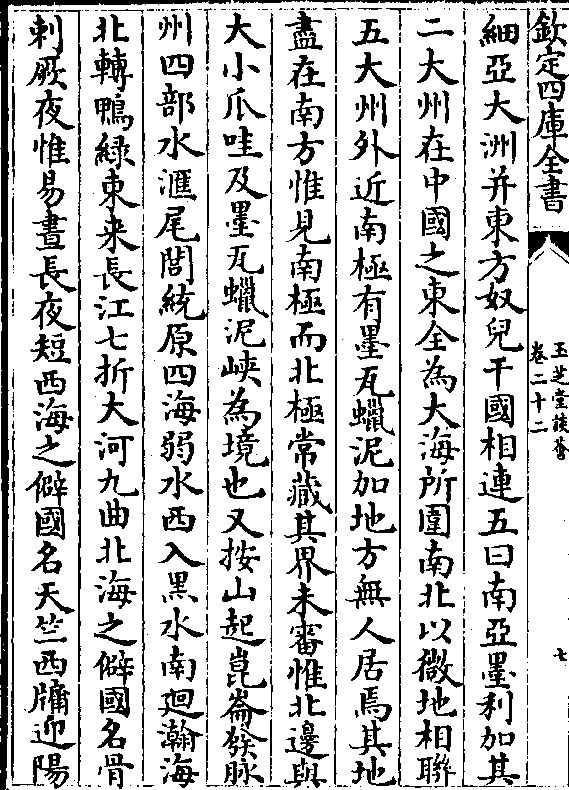 欽定四庫全書
玉芝堂談薈
卷二十二
七
細亞大洲并東方奴兒干國相連五曰南亞墨利加其
二大州在中國之東全為大海所圍南北以微地相聯
五大州外近南極有墨瓦蠟泥加地方無人居焉其地
盡在南方惟見南極而北極常藏其界未審惟北邊與
大小爪哇及墨瓦蠟泥峽為境也又按山起崑崙發脉
州四部水滙尾閭統原四海弱水西入黑水南廻瀚海
北轉鴨綠東来長江七折大河九曲北海之僻國名骨
刺厥夜惟易晝長夜短西海之僻國名天竺西牖迎陽